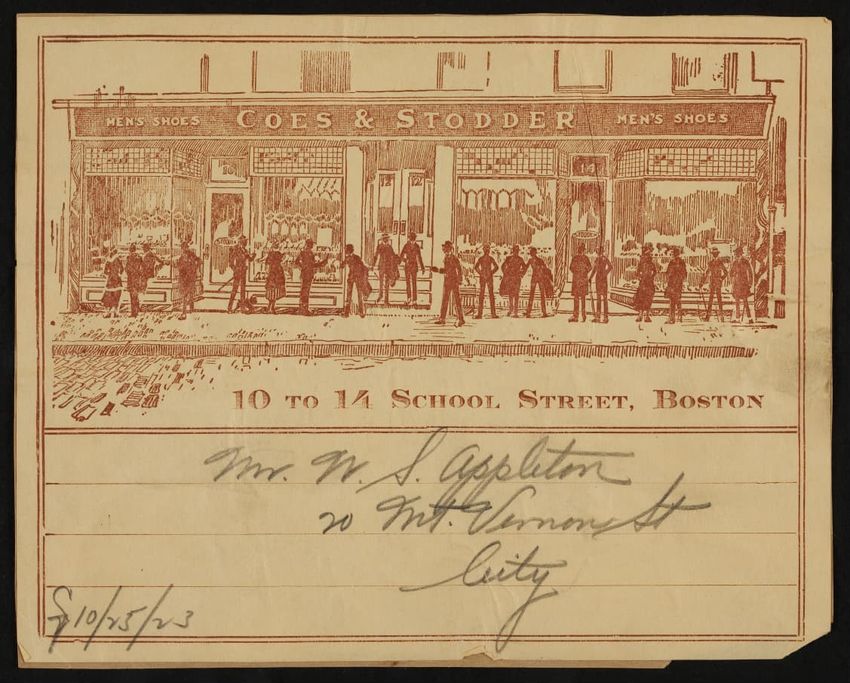 MEN'S SHOES COES & STODDER MEN'S SHOES
10 12 12
10 TO 14 SCHOOL STREET, BOSTON
Mr. W. S. Appleton
20 Mt. Vernon St
City
10/25/23